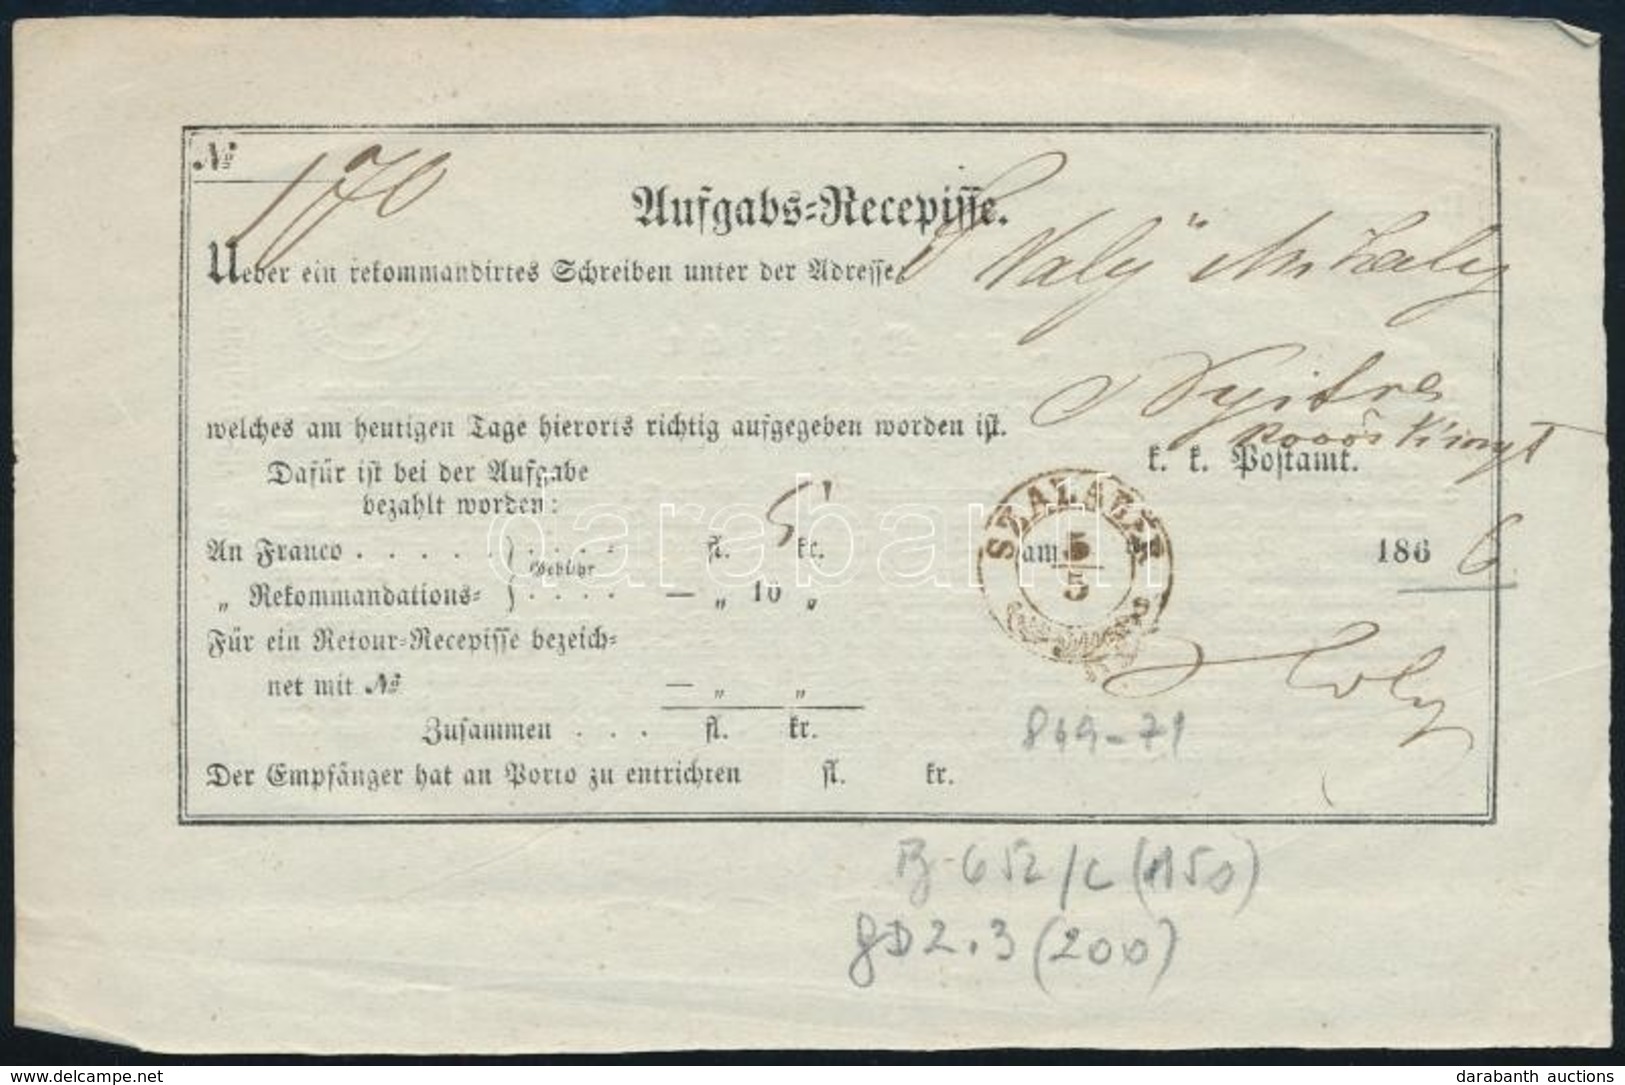 № 170
Aufgabs-Recepisse.
Ueber ein rekommandirtes Schreiben unter der Adresse Valy Mihaly
Nyitra
welches am heutigen Tage hierorts richtig aufgegeben worden ist.
k. k. Postamt.
Dafür ist bei der Aufgabe
bezahlt worden:
An Franco . . . . . } Gebühr . . . . fl. 5 kr.
„ Rekommandations- } . . . . — „ 10 „
am 5/5 186 6
Für ein Retour-Recepisse bezeich-
net mit № — „ „
Zusammen . . . fl. kr.
Der Empfänger hat an Porto zu entrichten fl. kr.
849-71
B-652/c (150)
gD2.3 (200)
darabanth
delcampe.net
darabanth auctions